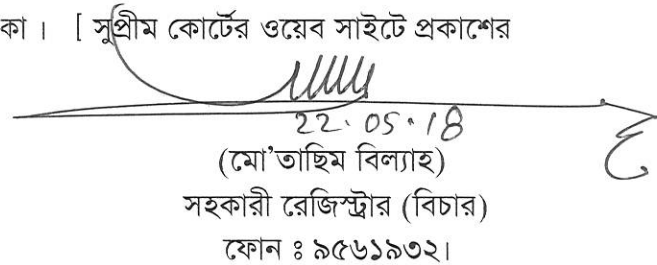 কা । [ সুপ্রীম কোর্টের ওয়েব সাইটে প্রকাশের
22.05.18
(মো'তাছিম বিল্যাহ)
সহকারী রেজিস্ট্রার (বিচার)
ফোন ঃ ৯৫৬১৯৩২।